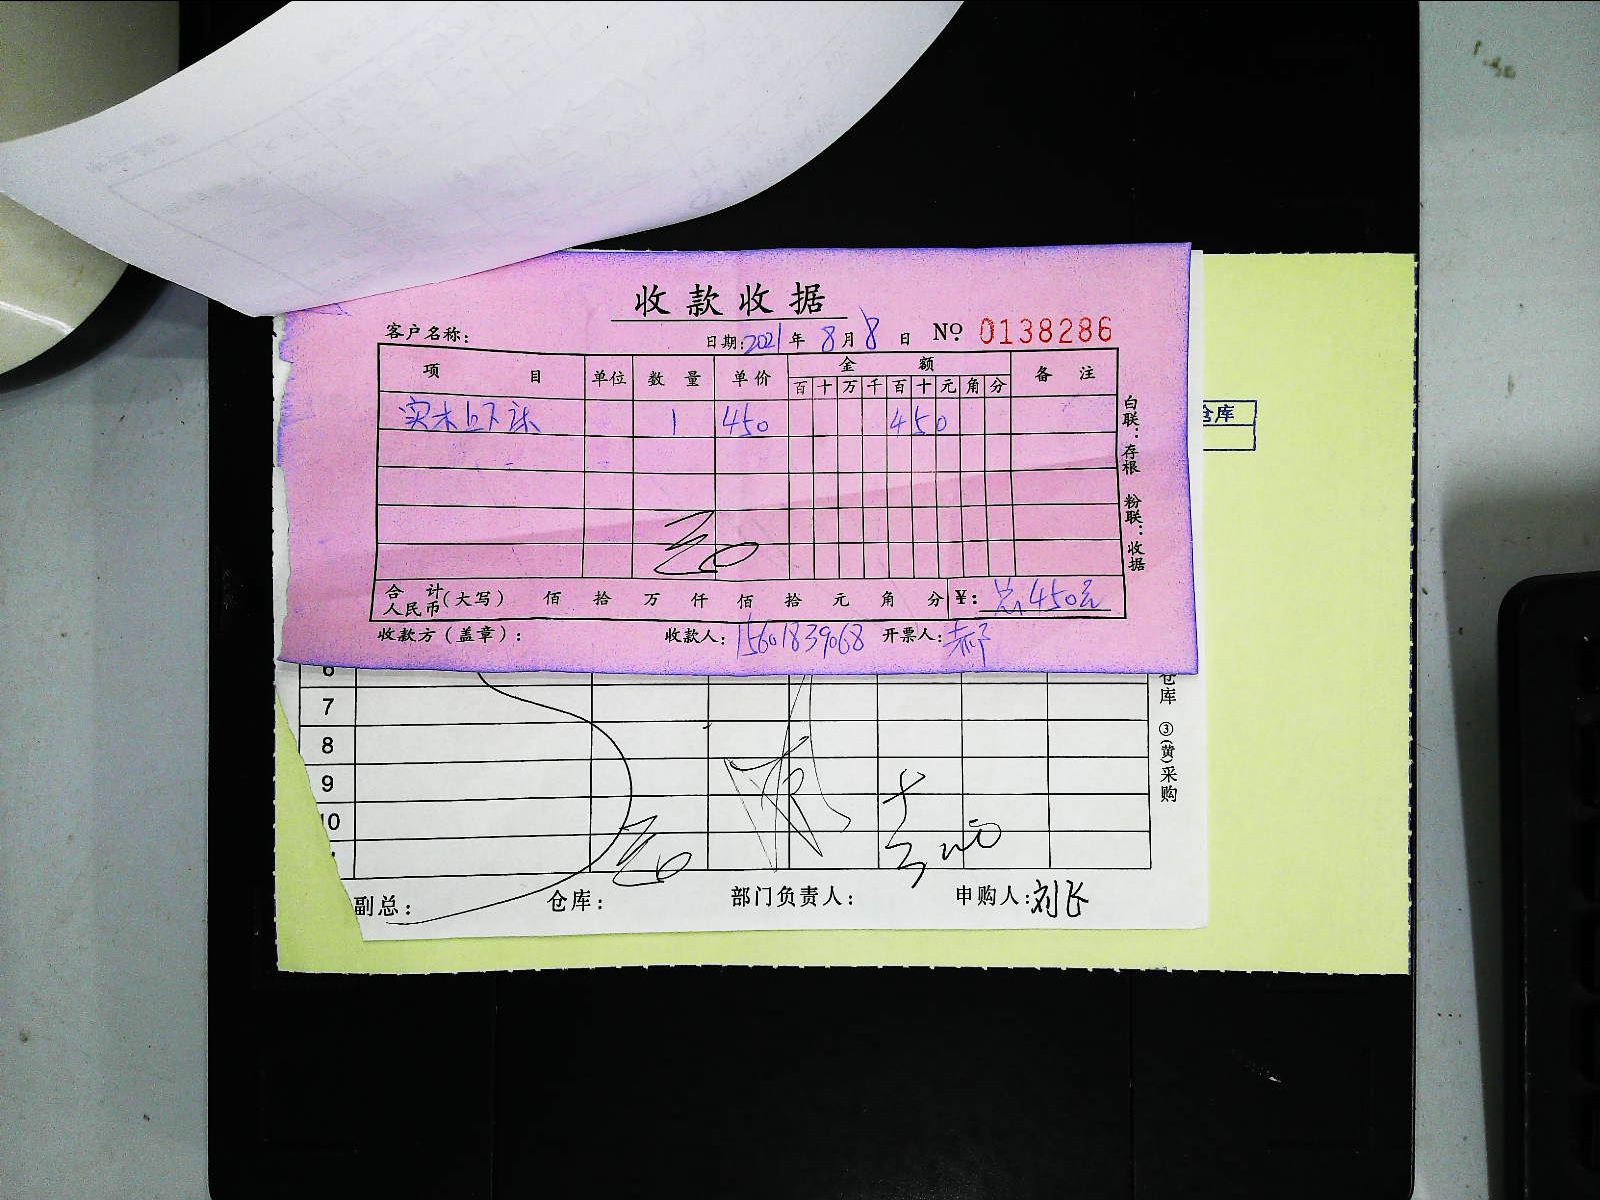 收款收据
客户名称： 日期：2021年8月8日 No. 0138286
项目 单位 数量 单价 金额 备注
百 十 万 千 百 十 元 角 分
实木上下床 1 450 450
合计人民币（大写） 佰 拾 万 仟 佰 拾 元 角 分 ¥：总450元
收款方（盖章）： 收款人：15601839068 开票人：郝
白联：存根 粉联：收据
仓库
6
7
8
9
10
副总： 仓库： 部门负责人： 申购人：刘飞
仓库 ③(黄)采购